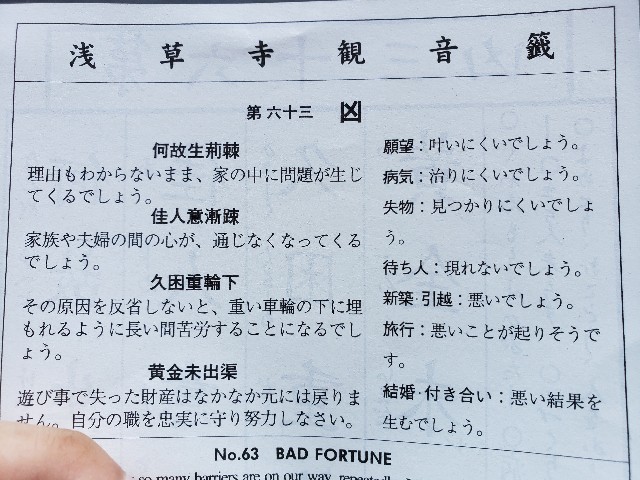 浅草寺観音籤
第六十三 凶
何故生荊棘
理由もわからないまま、家の中に問題が生じ
てくるでしょう。
佳人意漸踈
家族や夫婦の間の心が、通じなくなってくる
でしょう。
久困重輪下
その原因を反省しないと、重い車輪の下に埋
もれるように長い間苦労することになるでし
ょう。
黄金未出渠
遊び事で失った財産はなかなか元には戻りま
せん。自分の職を忠実に守り努力しなさい。
願望：叶いにくいでしょう。
病気：治りにくいでしょう。
失物：見つかりにくいでしょ
う。
待ち人：現れないでしょう。
新築・引越：悪いでしょう。
旅行：悪いことが起りそうで
す。
結婚・付き合い：悪い結果を
生むでしょう。
No.63 BAD FORTUNE
so many barriers are on our way, repeatedly